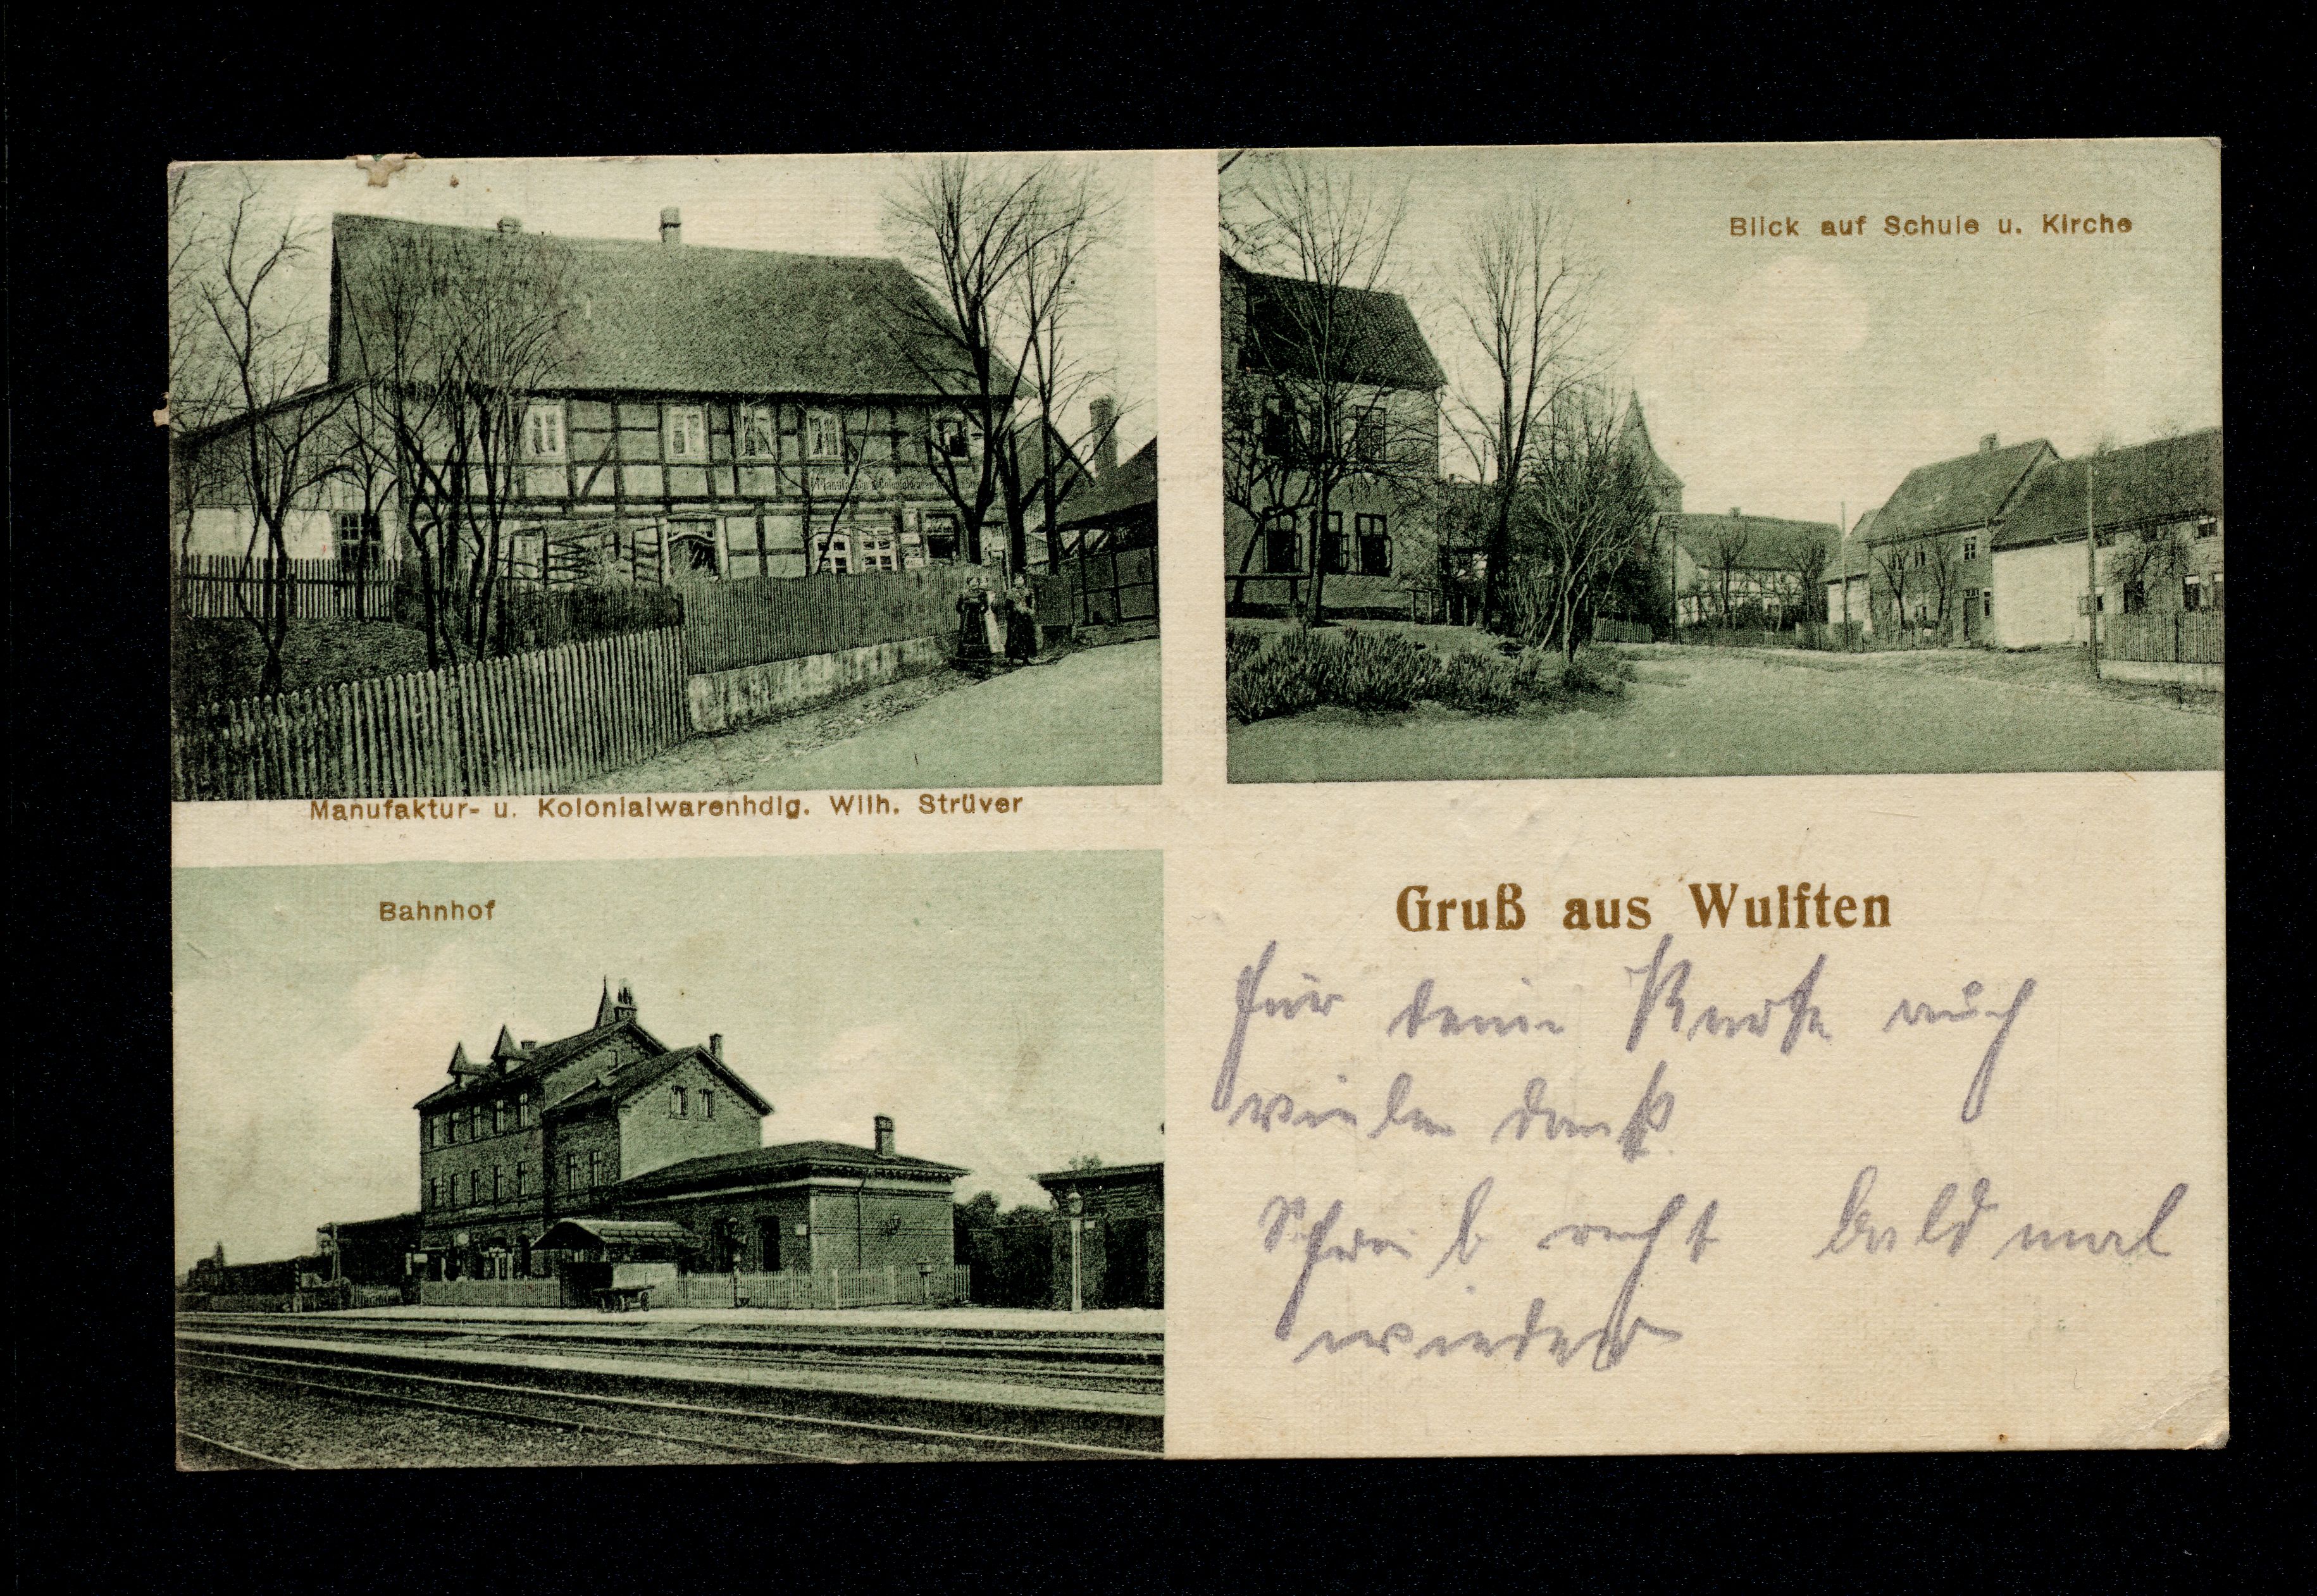 Blick auf Schule u. Kirche
Manufaktur- u. Kolonialwarenhdlg. Wilh. Strüver
Bahnhof
Gruß aus Wulften
für deine Karte auch
vielen dank
Schreib recht bald mal
wieder